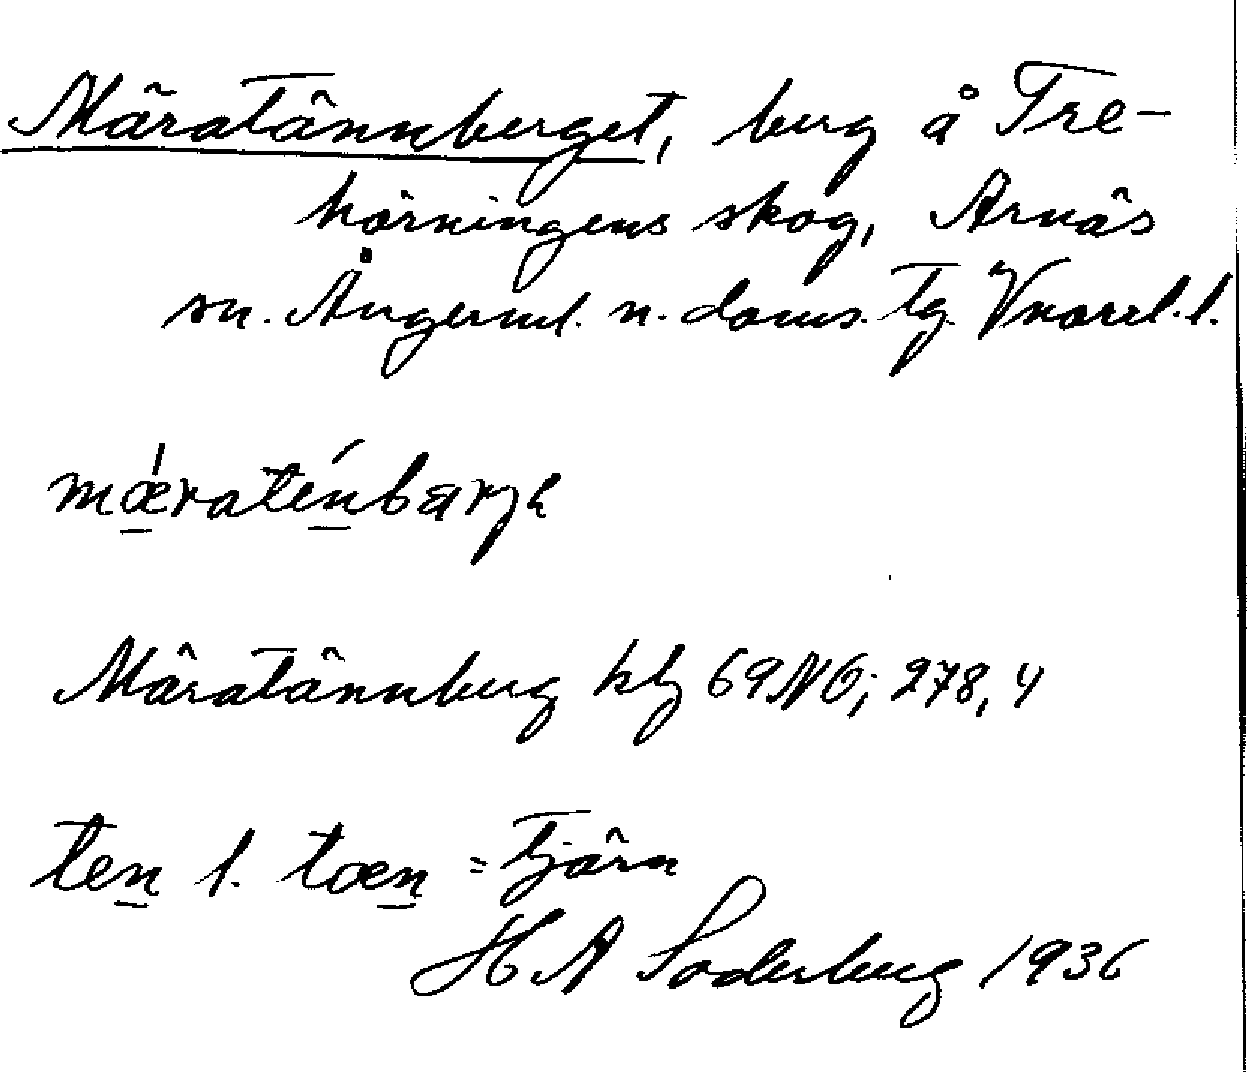 Märatännberget, berg å Tre-
hörningens skog, Arnäs
sn. Ångerml. n. doms. tg. Vnorrl. l.
mǽraténbærjə
Märatännberg kbl 69NO; 278,4
ten l. tæn = tjärn
H A Söderberg 1936